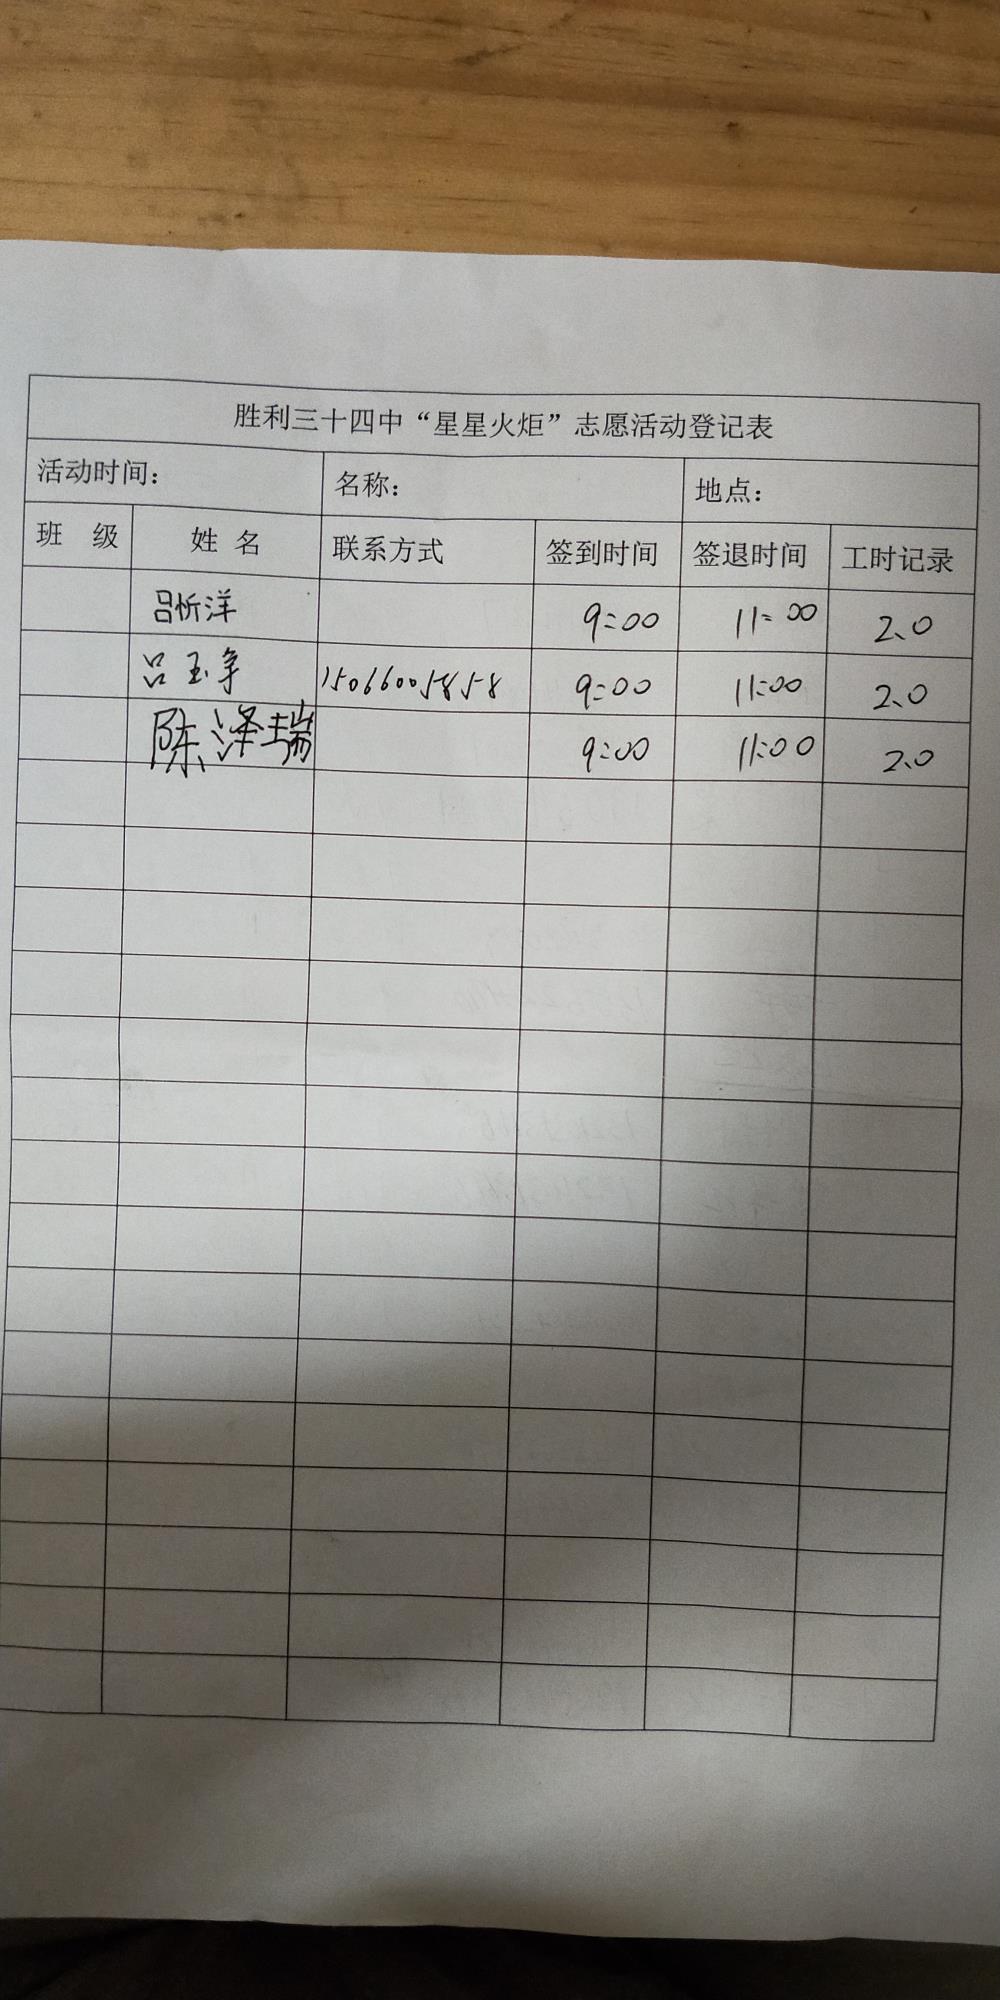 胜利三十四中“星星火炬”志愿活动登记表
活动时间： 名称： 地点：
班 级 姓 名 联系方式 签到时间 签退时间 工时记录
吕忻洋 9:00 11:00 2.0
吕玉争 15066005858 9:00 11:00 2.0
陈泽瑞 9:00 11:00 2.0